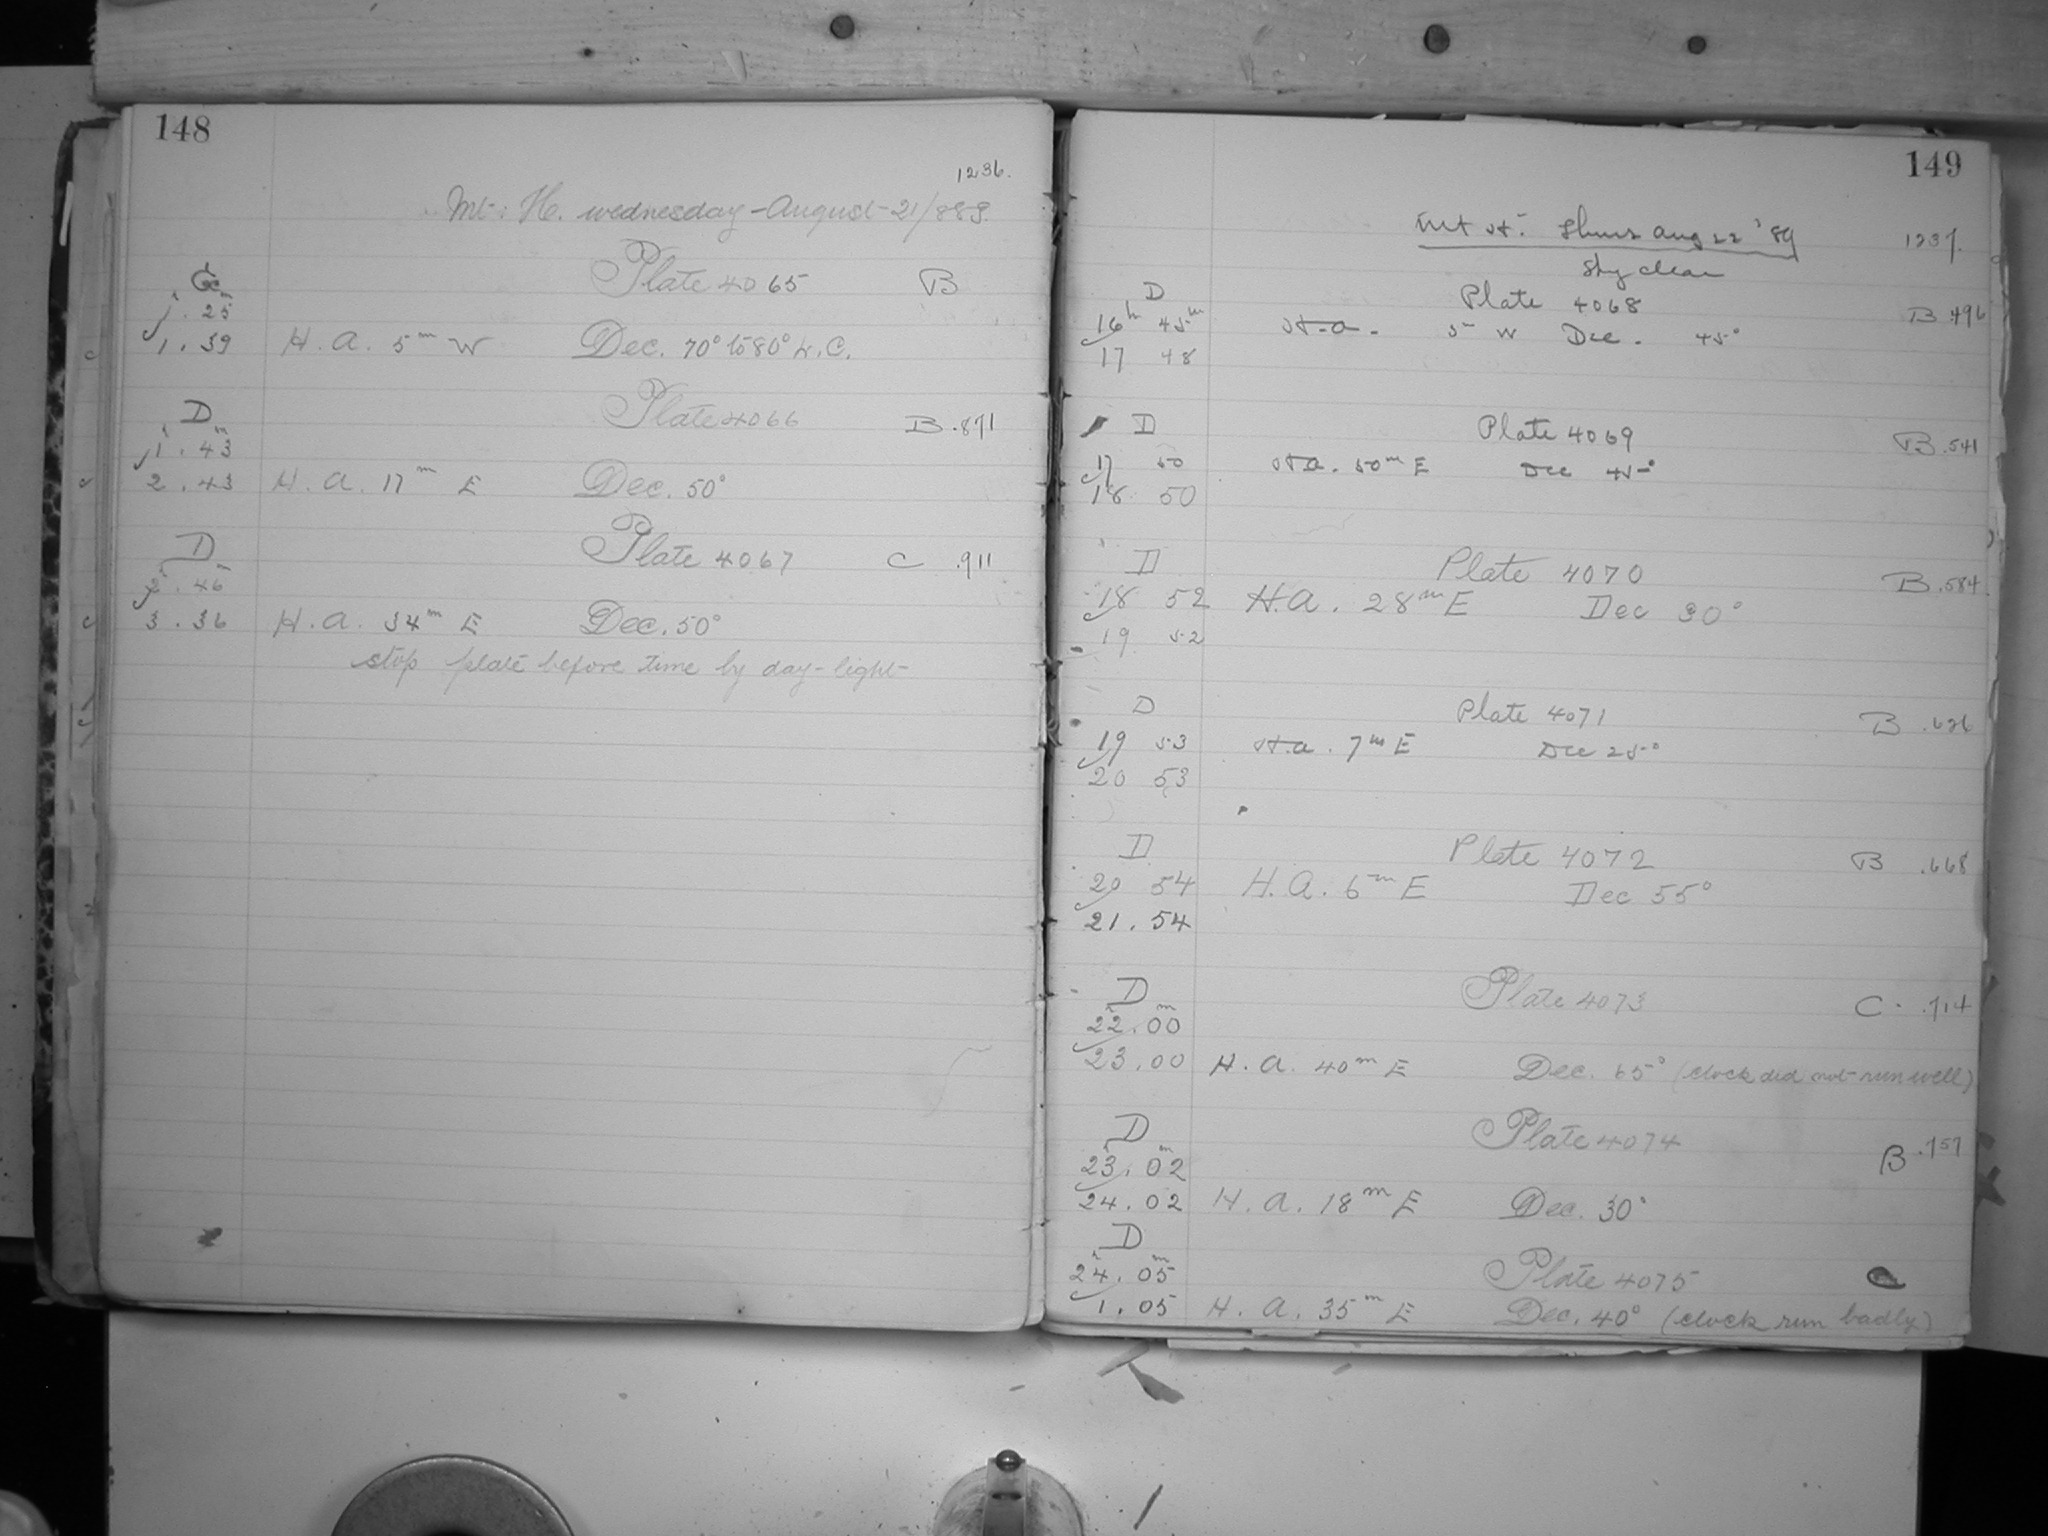 148
1236.
Mt. H. wednesday - August - 21/889.
Plate 4065 B
1. 25
1. 39 H. A. 5m W Dec. 70° to 80° L.C.
D Plate 4066 B .871
1. 43
2. 43 H. A. 17m E Dec. 50°
D Plate 4067 C .911
2. 46
3. 36 H. A. 34m E Dec. 50°
stop plate before time by day-light
149
Mt H. Thurs Aug 22 '89 1237.
Sky clear
D Plate 4068 B .496
16h 45m H.A. 5m W Dec. 45°
17 48
D Plate 4069 B .541
17 50 H.A. 50m E Dec 45°
18 50
D Plate 4070 B .584
18 52 H.A. 28m E Dec 30°
19 52
D Plate 4071 B .626
19 53 H.A. 7m E Dec 25°
20 53
D Plate 4072 B .668
20 54 H.A. 6m E Dec 55°
21. 54
D Plate 4073 C .714
22h. 00m
23. 00 H. A. 40m E Dec. 65° (clock did not run well)
D Plate 4074 B .757
23h. 02m
24. 02 H. A. 18m E Dec. 30°
D
24h. 05m Plate 4075
1. 05 H. A. 35m E Dec. 40° (clock run badly)